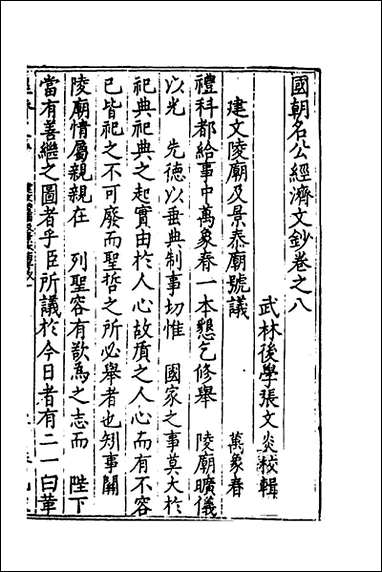 國朝名公經濟文鈔卷之八
武林後學張文炎校輯
建文陵廟及景泰廟號議 萬象春
禮科都給事中萬象春一本懇乞修舉 陵廟曠儀
以光 先德以垂典制事切惟 國家之事莫大於
祀典祀典之起實由於人心故質之人心而有不容
已皆祀之不可廢而聖哲之所必舉者也矧事關
陵廟情屬親親在 列聖容有欲為之志而 陛下
當有善繼之圖者乎臣所議於今日者有二一曰革